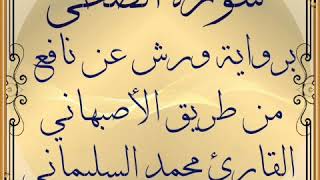 سورة الضحى
برواية ورش عن نافع
من طريق الأصبهاني
القارئ محمد السليماني